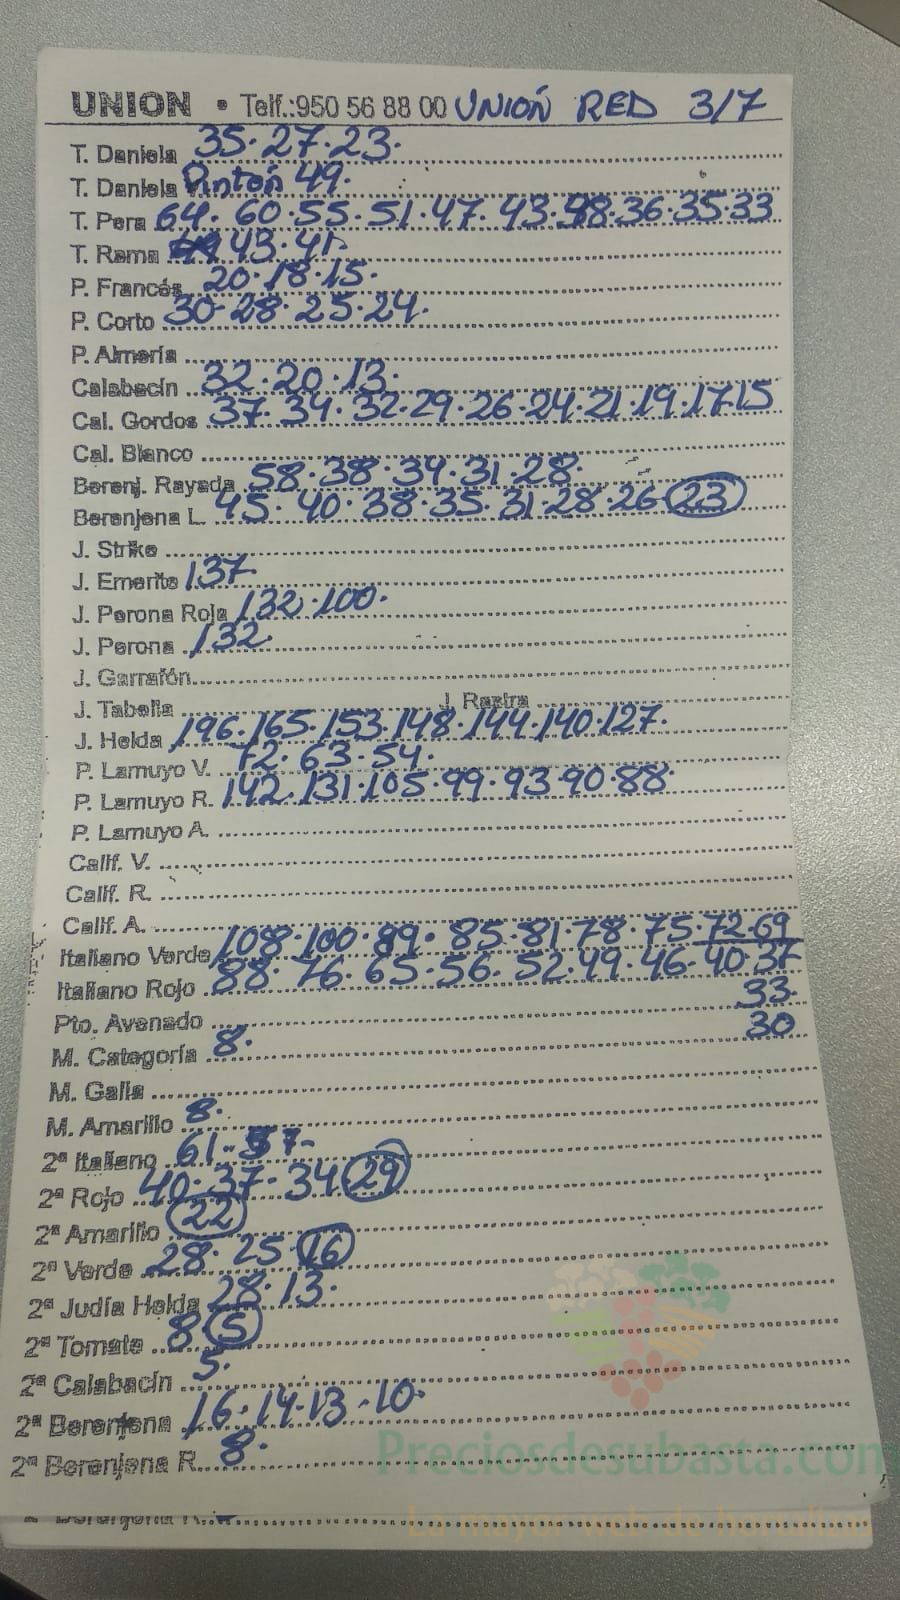 UNION • Telf.:950 56 88 00 UNIÓN RED 3/7
T. Daniela 35·27·23·
T. Daniela Pintón 49·
T. Pera 64·60·55·51·47·43·38·36·35·33
T. Rama 43·41·
P. Francés 20·18·15·
P. Corto 30·28·25·24·
P. Almería
Calabacín 32·20·13·
Cal. Gordos 37·34·32·29·26·24·21·19·17·15
Cal. Blanco
Berenj. Rayada 58·38·34·31·28·
Berenjena L. 45·40·38·35·31·28·26·23
J. Strike
J. Emerite 137·
J. Perona Roja 132·100·
J. Perona 132·
J. Garrafón
J. Tabella J. Rastra
J. Helda 196·165·153·148·144·140·127·
P. Lamuyo V. 72·63·54·
P. Lamuyo R. 142·131·105·99·93·90·88·
P. Lamuyo A.
Calif. V.
Calif. R.
Calif. A.
Italiano Verde 108·100·89·85·81·78·75·72·69
Italiano Rojo 88·76·65·56·52·49·46·40·37
33·
Pto. Avenado
30
M. Categoría 8·
M. Galia
M. Amarillo 8·
2ª Italiano 61·57·
2ª Rojo 40·37·34 29
2ª Amarillo 22
2ª Verde 28·25·16
2ª Judía Helda 28·13·
2ª Tomate 8 5
2ª Calabacín 5·
2ª Berenjena 16·14·13·10·
2ª Berenjena R. 8·
Preciosdesubasta.com
La mayor web de hortalizas